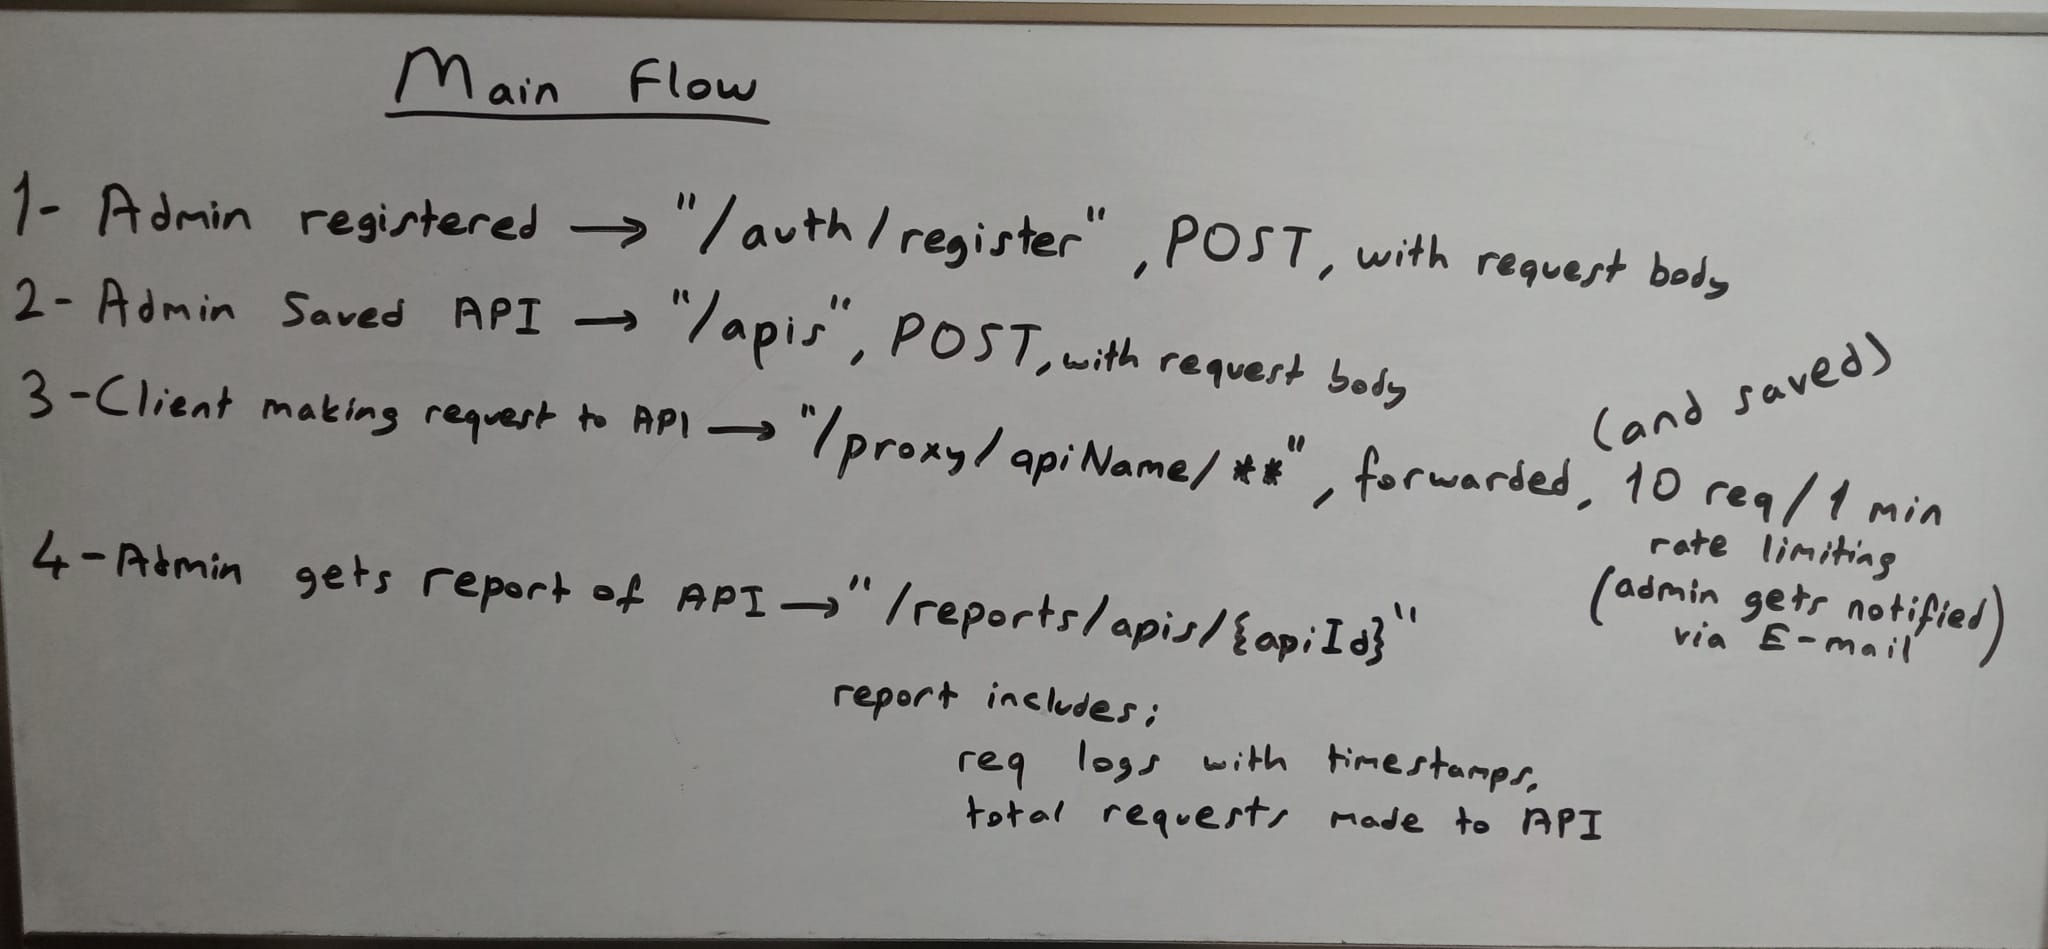 Main Flow
1- Admin registered → "/auth/register", POST, with request body
2- Admin Saved API → "/apis", POST, with request body
3-Client making request to API → "/proxy/apiName/**", forwarded, 10 req/1 min
(and saved)
rate limiting
(admin gets notified)
via E-mail
4-Admin gets report of API → "/reports/apis/{apiId}"
report includes;
req logs with timestamps,
total requests made to API